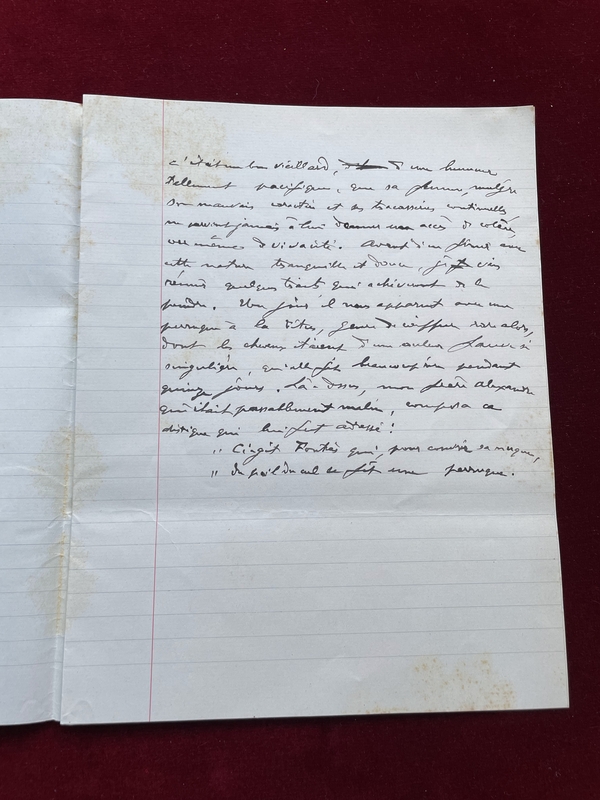 c'était un bon vieillard, d'une humeur
tellement pacifique, que sa femme, malgré
son mauvais caractère et ses tracasseries continuelles
ne parvint jamais à lui donner un accès de colère,
ou même de vivacité. Avant d'en finir avec
cette nature tranquille et douce, je vais
réunir quelques traits qui achèveront de le
peindre. Un jour il nous apparut avec une
perruque à la Titus, genre de coiffure rare alors,
dont les cheveux étaient d'une couleur si
singulière, qu'elle fit beaucoup rire pendant
quinze jours. Là-dessus, mon frère Alexandre
qui était passablement malin, composa ce
distique qui lui fut adressé :
" Ci-gît qui, pour couvrir sa nuque,
" Du poil du cul se fit une perruque.